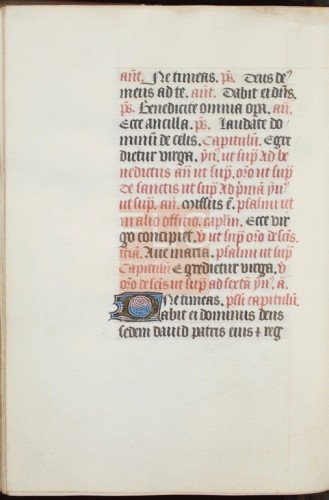 añt. Ne timeas. ps̄. Deus de⁹
meus ad te. añt. Dabit ei dñs.
ps̄. Benedicite omnia opa. añ.
Ecce ancilla. ps̄. Laudate do
minū de celis. Capitulū. Egre
dietur virga. yñ. ut sup̄ Ad be
nedictus añ ut sup̄. orō ut sup̄
De sanctis ut sup̄ Ad primā yñ
ut sup̄. añ. Missus ē. psalmi ut
in alio officio. capłm. Ecce vir
go concipiet. v ut sup̄ orō de scis.
tcia. Aue maria. psalmi ut sup̄
Capitulū Egredietur virga. v
orō de scis ut sup̄ ad sextā yñ. a.
Ne timeas. psli capitulū.
Dabit ei dominus deus
sedem dauid patris eius ⁊ reg